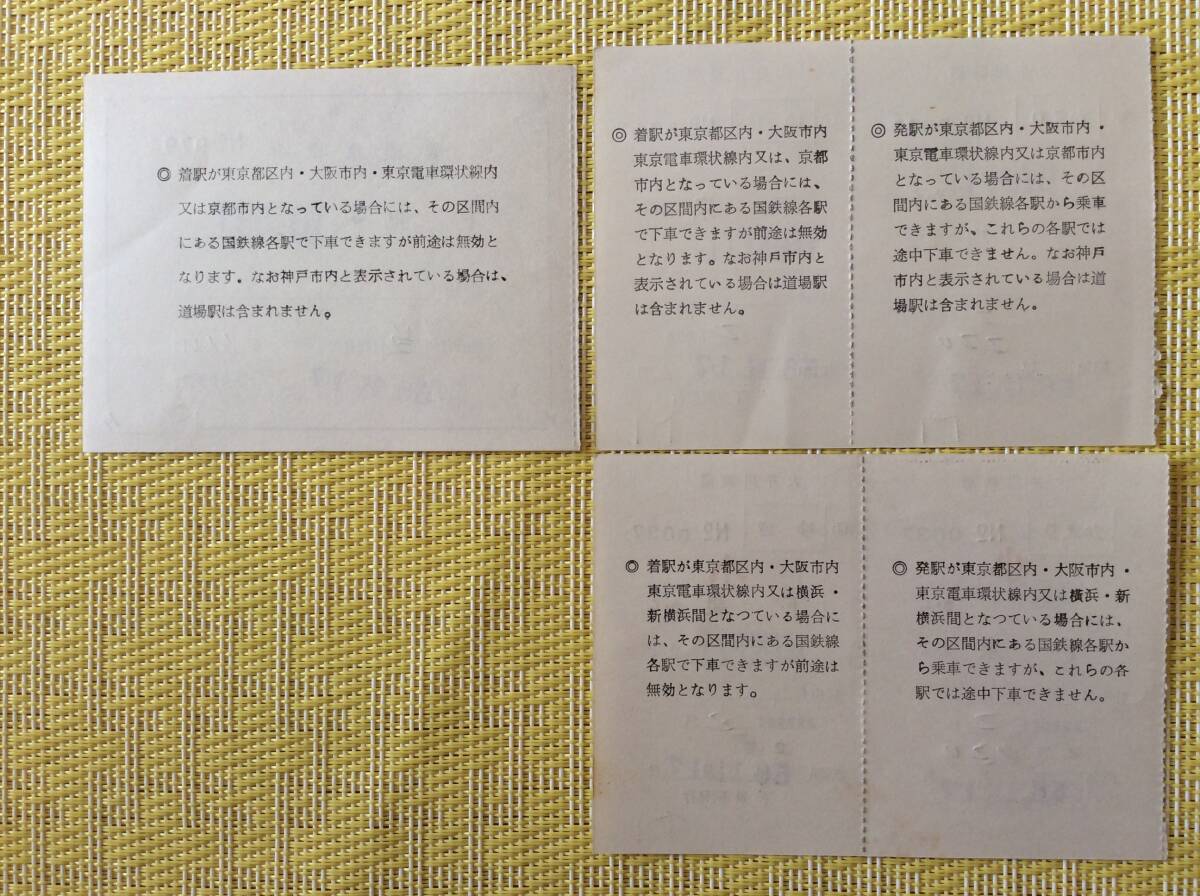 ◎ 着駅が東京都区内・大阪市内・東京電車環状線内
又は京都市内となっている場合には、その区間内
にある国鉄線各駅で下車できますが前途は無効と
なります。なお神戸市内と表示されている場合は、
道場駅は含まれません。
◎ 着駅が東京都区内・大阪市内
東京電車環状線内又は、京都
市内となっている場合には、
その区間内にある国鉄線各駅
で下車できますが前途は無効
となります。なお神戸市内と
表示されている場合は道場駅
は含まれません。
◎ 発駅が東京都区内・大阪市内・
東京電車環状線内又は京都市内
となっている場合には、その区
間内にある国鉄線各駅から乗車
できますが、これらの各駅では
途中下車できません。なお神戸
市内と表示されている場合は道
場駅は含まれません。
◎ 着駅が東京都区内・大阪市内
東京電車環状線内又は横浜・
新横浜間となつている場合に
は、その区間内にある国鉄線
各駅で下車できますが前途は
無効となります。
◎ 発駅が東京都区内・大阪市内・
東京電車環状線内又は横浜・新
横浜間となつている場合には、
その区間内にある国鉄線各駅か
ら乗車できますが、これらの各
駅では途中下車できません。